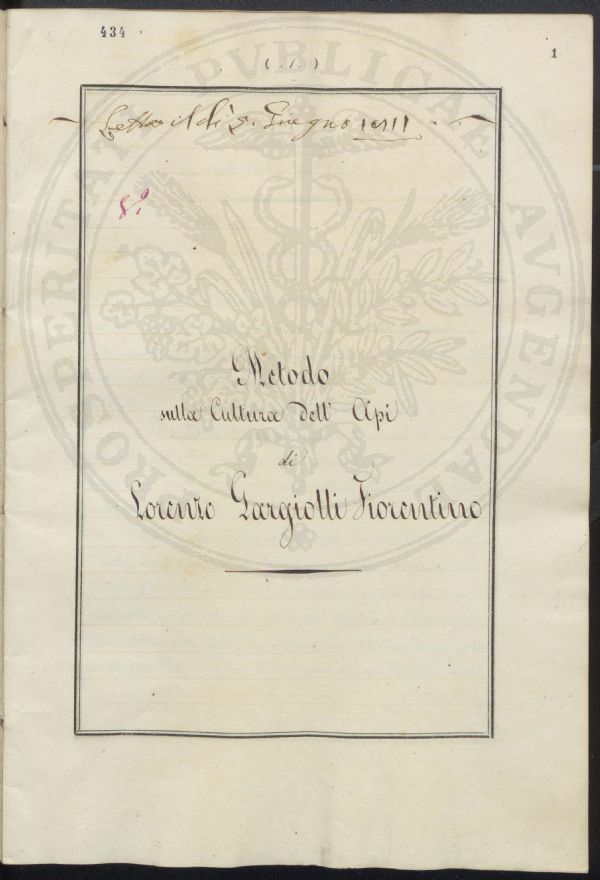 434
1
( . 1 . )
Letta il dì 2. Giugno
8.°
Metodo
sulla Cultura dell' Api
di
Lorenzo Gargiolli Fiorentino
PROSPERITATI PVBLICAE AVGENDAE